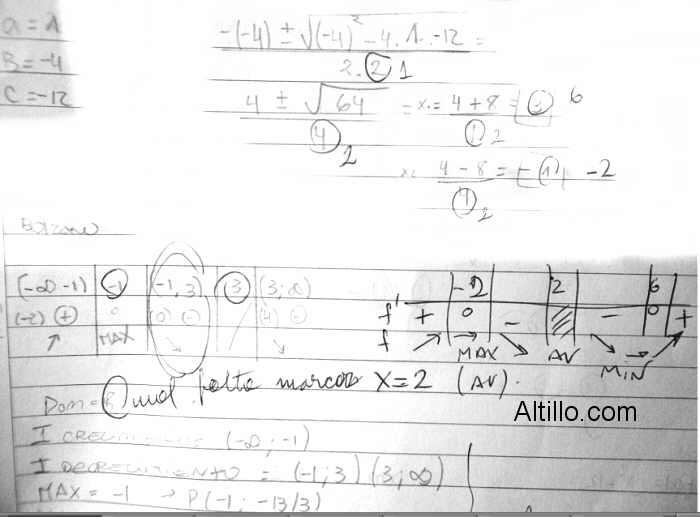 a = 1
B = -4
C = -12
-(-4) ± √(-4)² - 4.1.-12 =
2.2 1
4 ± √64 = x = 4+8 = 3 6
4 2 1 2
x = 4-8 = -1 -2
4 2
Bolzano
(-∞ -1) -1 (-1,3) 3 (3;∞)
(-2) + 0 (0) - (4) -
↑ MAX ↘ ↘
-2 2 6
f' + 0 - - 0 +
f ↗ → MAX ↘ AV ↘ → MIN ↗
mal falta marcar x=2 (AV).
Altillo.com
Dom =
I CRECIMIENTO (-∞;-1)
I DECRECIMIENTO = (-1;3) (3;∞)
MAX = -1 → P(-1; -13/3)